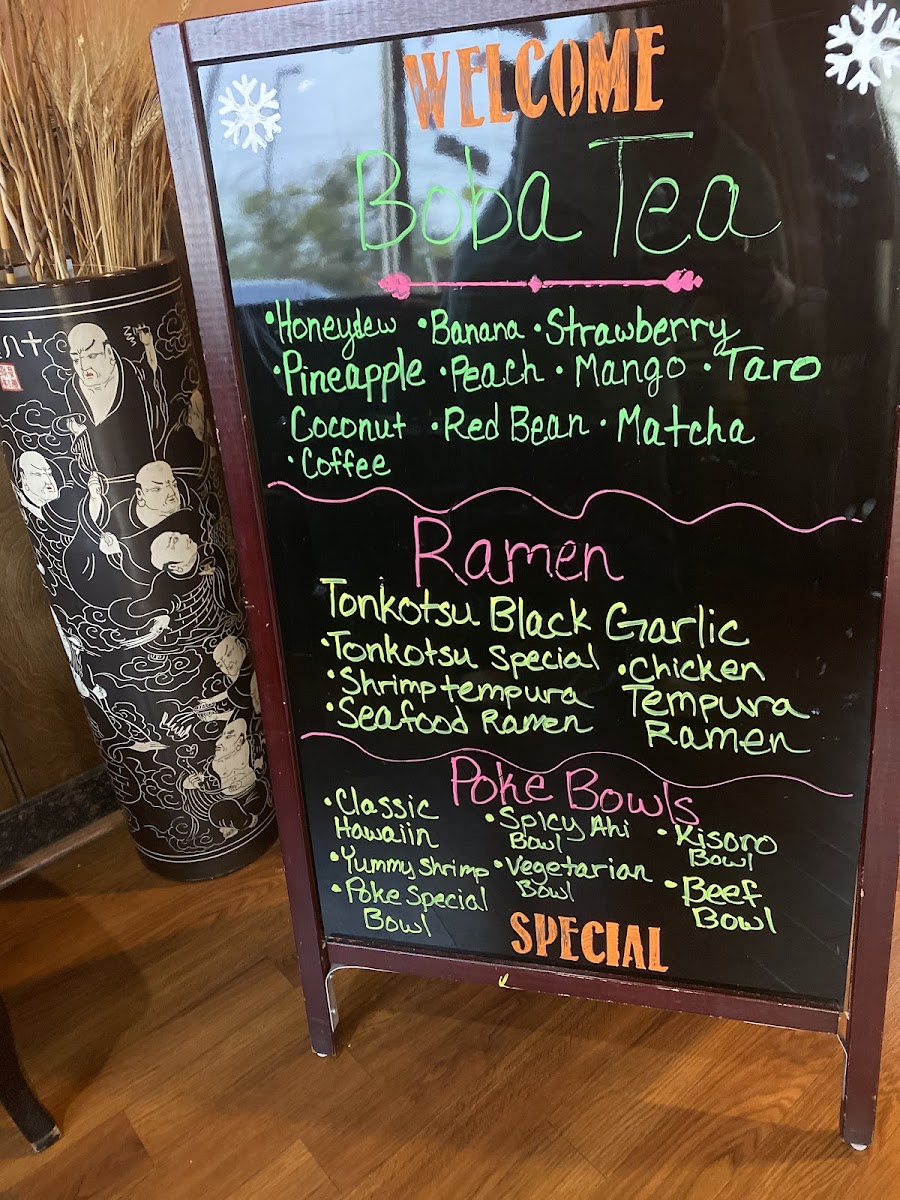 WELCOME
Boba Tea
•Honeydew •Banana •Strawberry
•Pineapple •Peach •Mango •Taro
Coconut •Red Bean •Matcha
•Coffee
Ramen
Tonkotsu Black Garlic
•Tonkotsu Special
•Shrimp tempura
•Seafood Ramen
•Chicken
Tempura
Ramen
Poke Bowls
•Classic
Hawaiin
•Yummy Shrimp
•Poke Special
Bowl
•Spicy Ahi
Bowl
•Vegetarian
Bowl
•Kisoro
Bowl
•Beef
Bowl
SPECIAL